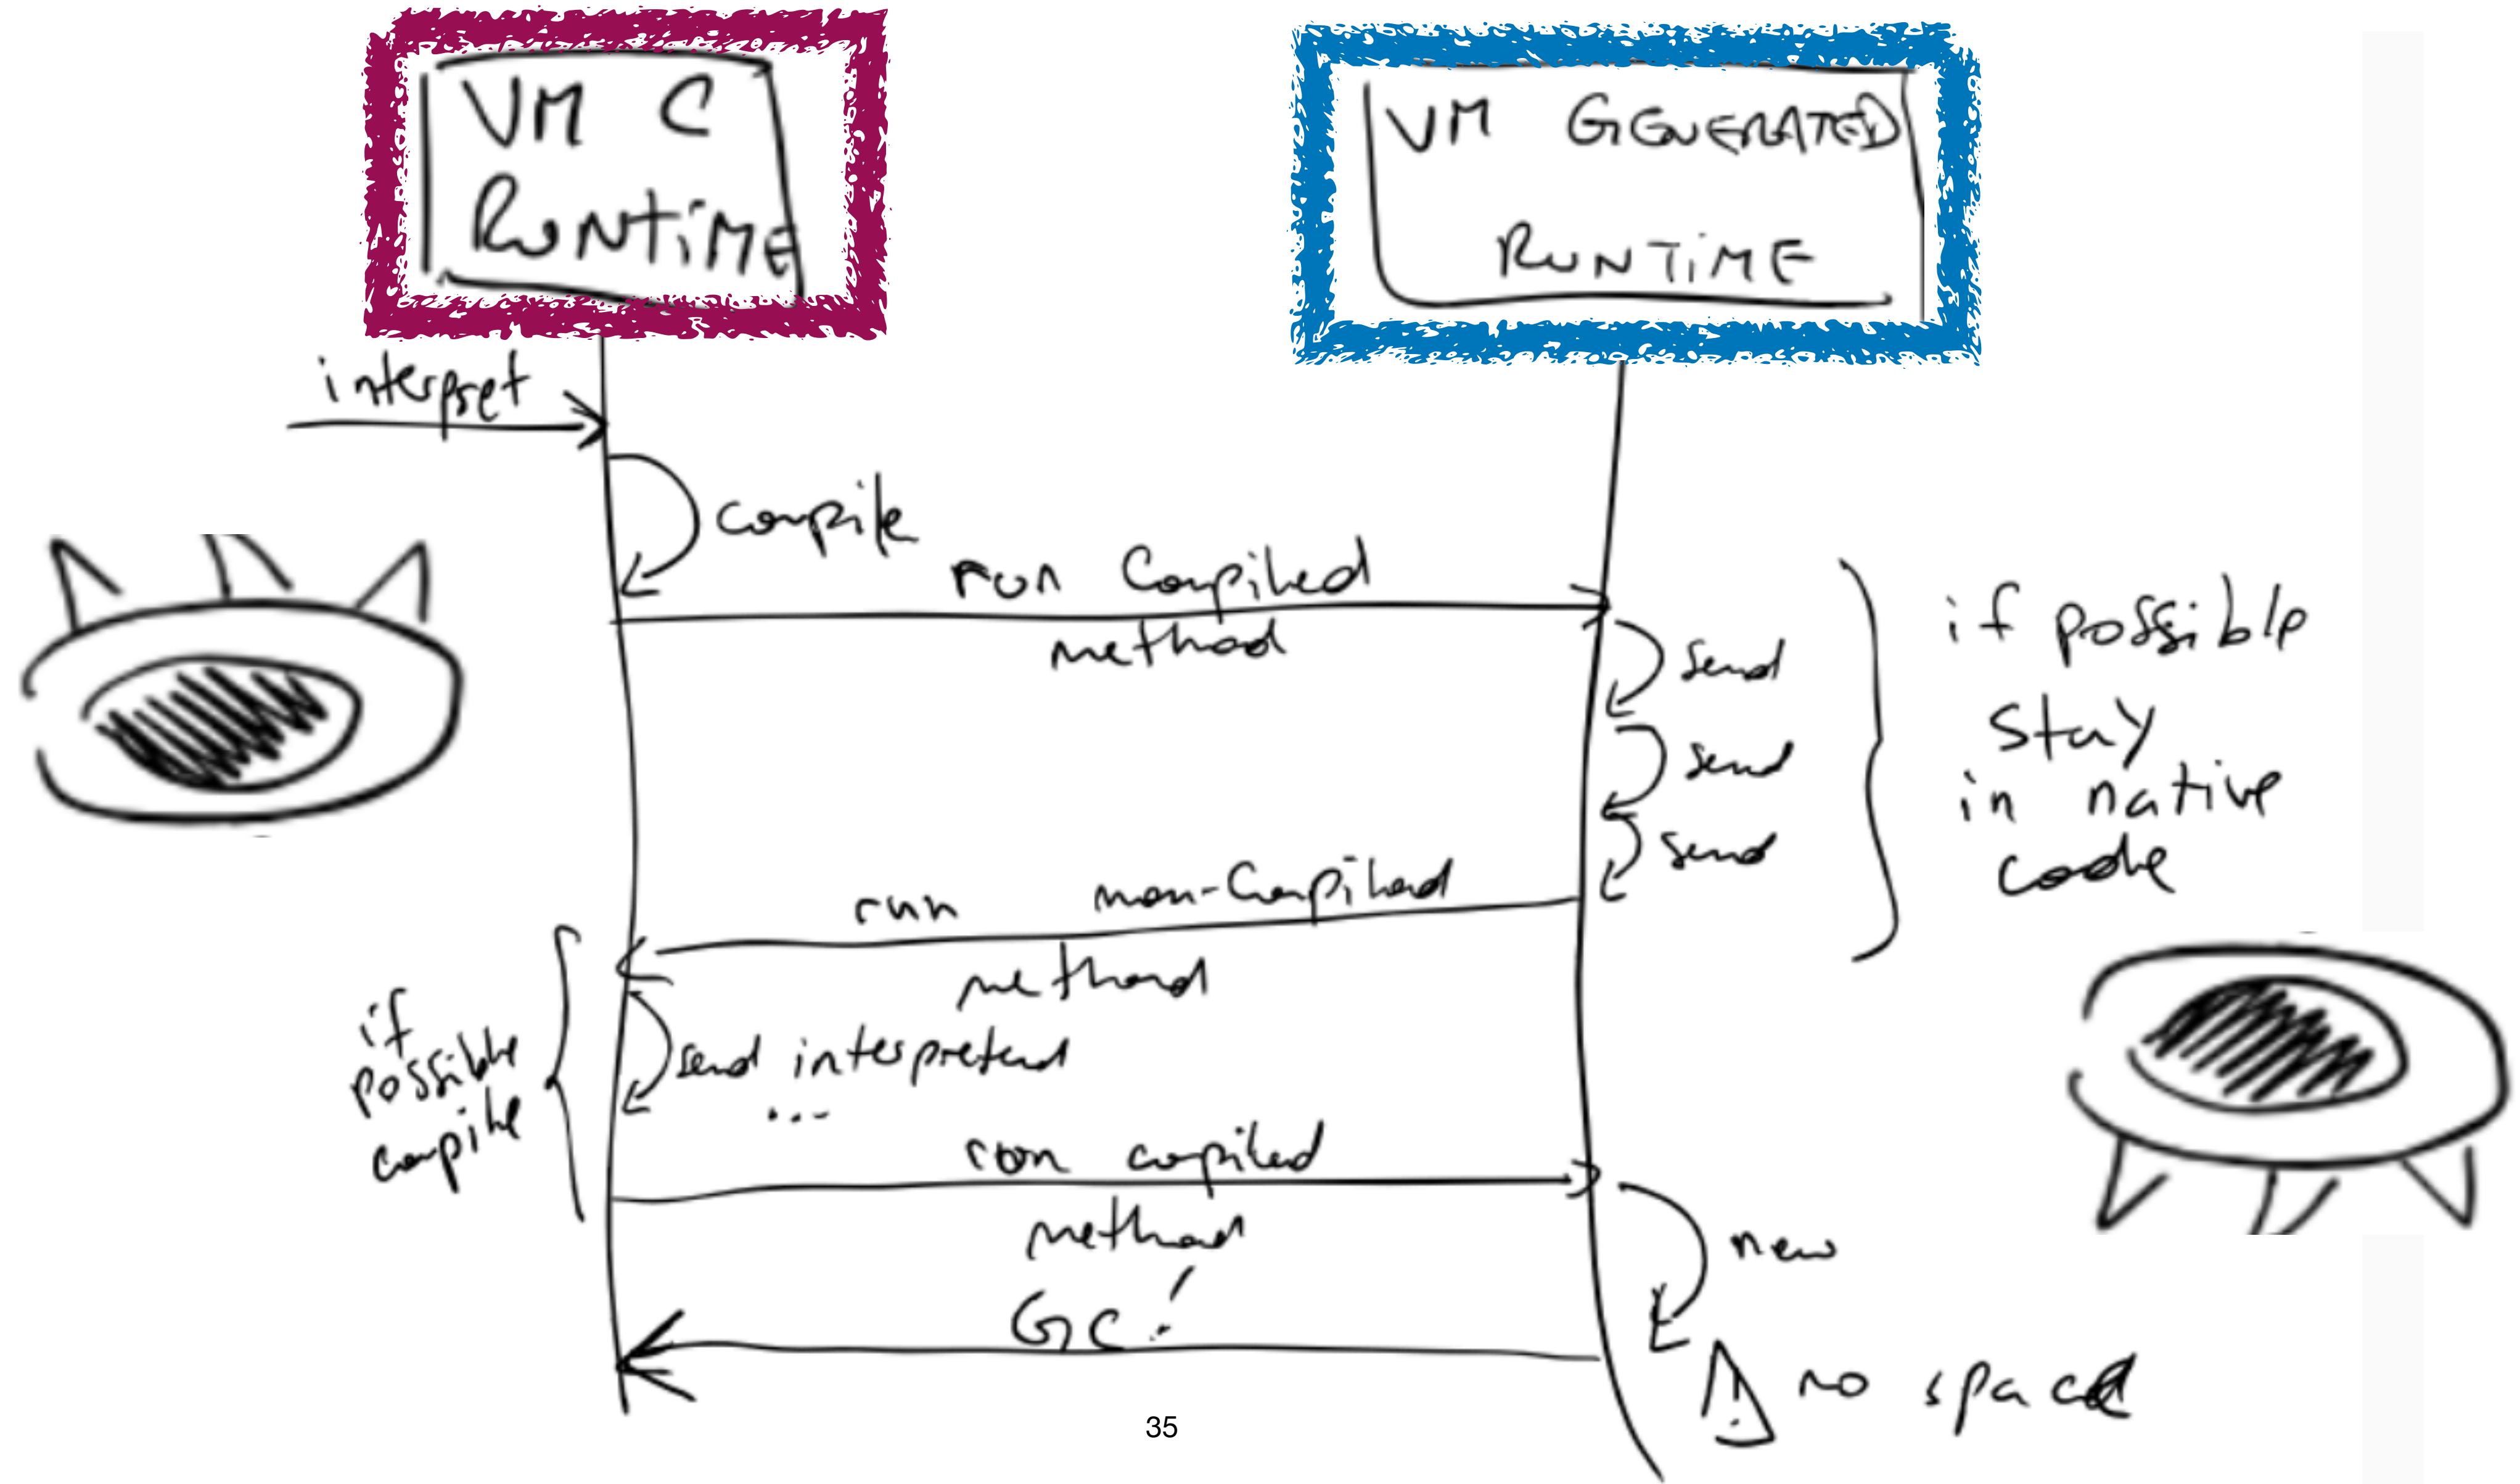 VM C
RUNTIME
VM GENERATED
RUNTIME
interpret
compile
run Compiled
method
send
send
send
if possible
stay
in native
code
run non-Compiled
method
if
possible
compile
send interpreted
...
run compiled
method
new
GC!
! no space
35